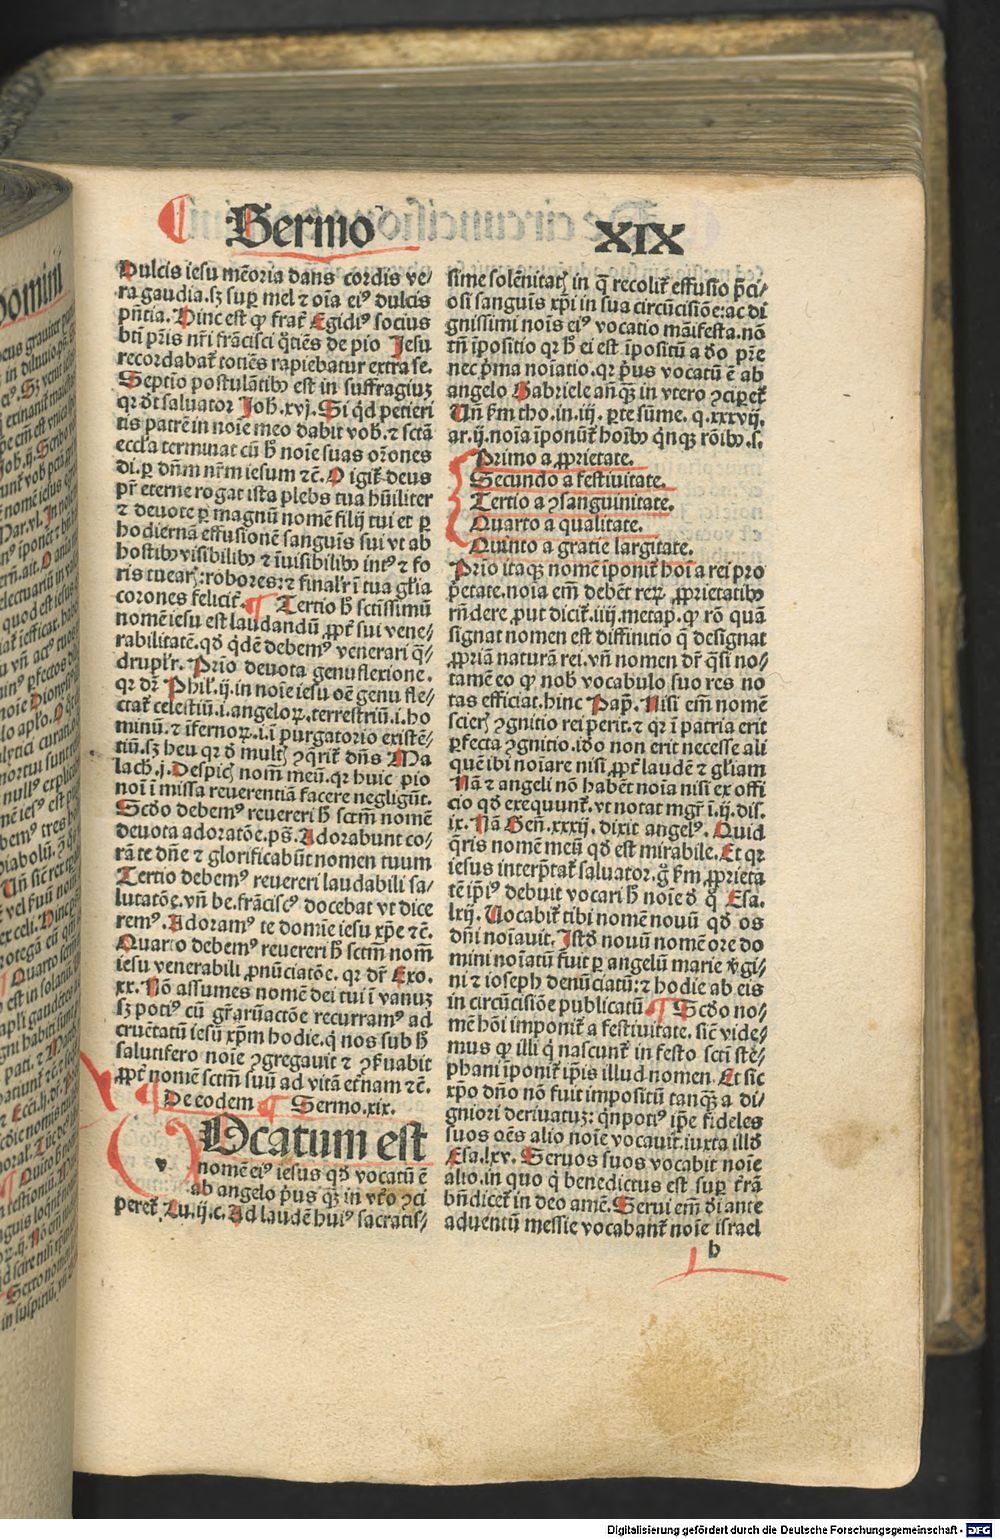 Sermo XIX
Dulcis iesu mẽoria dans cordis ve⸗
ra gaudia. sꝫ suꝑ mel ⁊ oĩa eiꝰ dulcis
pñtia. Hinc est ꝙ frat̃ Egidiꝰ socius
bti pr̃is nr̃i frãcisci q̃tiẽs de pio Iesu
recordabat̃ totiẽs rapiebatur extra se.
Septĩo postulãtibꝰ est in suffragiuꝫ
qr dt̃ saluator Joh̃. xvj. Si qd petieri
tis patrẽ in noĩe meo dabit vob̃. ⁊ sctã
eccl̃a terminat cũ h̃ noĩe suas or̃ones
di. ꝑ dñm nr̃m iesum ⁊c̃. O igit̃ deus
pr̃ eterne rogat ista plebs tua hũiliter
⁊ deuote ꝑ magnũ nomẽ filij tui et ꝑ
hodiernã effusionẽ sanguĩs sui vt ab
hostibꝰ visibilibꝰ ⁊ ĩuisibilibꝰ intꝰ ⁊ fo
ris tuearꝭ: robores: ⁊ finalr̃ ĩ tua gl̃ia
corones felicit̃. ¶ Tertio h̃ sctĩssimũ
nomẽ iesu est laudandũ ꝓpt̃ sui vene⸗
rabilitatẽ. qd̃ qdẽ debemꝰ venerari q̃⸗
druplr̃. Prĩo deuota genuflexione.
qr dr̃ Phil̃. ij. in noĩe iesu oẽ genu fle⸗
ctat̃ celestiũ. i. angeloꝝ. terrestriũ. i. ho
minũ. ⁊ ĩfernoꝝ. i. ĩ purgatorio existẽ⸗
tiũ. sꝫ heu qr d̃ multꝭ ꝯqrit̃ dñs Ma
lach̃. j. Despicꝭ nom̃ meũ. qr huic pio
noĩ ĩ missa reuerentiã facere negligũt.
Scd̃o debemꝰ reuereri h̃ sctm̃ nomẽ
deuota adoratõe. pš. Adorabunt co⸗
rã te dñe ⁊ glorificabũt nomen tuum
Tertio debemꝰ reuereri laudabili sa⸗
lutatõe. vñ be. frãciscꝰ docebat vt dice
remꝰ. Adoramꝰ te domĩe iesu xp̃e ⁊c̃.
Quarto debemꝰ reuereri h̃ sctm̃ nom̃
iesu venerabili ꝓnũciatõe. qr dr̃ Exo.
xx. Nõ assumes nomẽ dei tui ĩ vanuꝫ
sꝫ potiꝰ cũ gr̃aꝝactõe recurramꝰ ad
cruẽtatũ iesũ xp̃m hodie. q nos sub h̃
salutifero noĩe ꝯgregauit ⁊ ꝯf̃uabit
ꝓpt̃ nomẽ sctm̃ suũ ad vitã et̃nam ⁊c̃.
¶ De eodem ¶ Sermo. xix.
Ocatum est
nomẽ eiꝰ iesus qd̃ vocatũ ẽ
ab angelo p̃us qꝫ in vt̃o ꝯci
peret̃. Lu. ij. c. Ad laudẽ huiꝰ sacratis⸗
sime solẽnitatꝭ in q̃ recolit̃ effusio p̃ci⸗
osi sanguĩs xp̃i in sua circũcisiõe: ac di
gnissimi noĩs eiꝰ vocatio mãifesta. nõ
tñ ĩpositio qr h̃ ei est ĩpositũ a do pr̃e
nec p̃ma noĩatio. qr p̃us vocatũ ẽ ab
angelo Gabriele añqꝫ in vtero ꝯciꝑet̃
Uñ km̃ tho. in. iij. ꝑte sũme. q. xxxvij.
ar. ij. noĩa ĩponũt̃ hoĩbꝰ qnqꝫ rõibꝰ. s.
Primo a ꝓprietate.
Secundo a festiuitate.
Tertio a ꝯsanguinitate.
Quarto a qualitate.
Quinto a gratie largitate.
Prĩo itaqꝫ nomẽ ĩponit̃ hoĩ a rei pro
ꝑetate. noĩa em̃ debẽt reꝝ ꝓprietatibꝰ
rñdere. put dicit̃. iiij. metap̃. ꝙ rõ quã
signat nomen est diffinitio q̃ designat
ꝓpriã naturã rei. vñ nomen dr̃ q̃si no⸗
tamẽ eo ꝙ nob̃ vocabulo suo res no
tas efficiat. hinc Pap̃. Nisi em̃ nomẽ
scierꝭ ꝯgnitio rei perit. ⁊ qr ĩ patria erit
ꝑfecta ꝯgnitio. ido non erit necesse ali
quẽ ibi noĩare nisi ꝓpt̃ laudẽ ⁊ gl̃iam
Nã ⁊ angeli nõ habẽt noĩa nisi ex offi
cio qd̃ exequunt̃. vt notat mgr̃ ĩ. ij. dis.
ix. Nã Geñ. xxxij. dixit angelꝰ. Quid
q̃ris nomẽ meũ qd̃ est mirabile. Et qr
iesus interp̃tat̃ saluator. g̃ km̃ ꝓprieta
tẽ ip̃iꝰ debuit vocari h̃ noĩe d̃ q̃ Esa.
lxij. Uocabit̃ tibi nomẽ nouũ qd̃ os
dñi noĩauit. Istd̃ nouũ nomẽ ore do
mini noĩatũ fuit ꝑ angelũ marie v̓gi⸗
ni ⁊ ioseph denũciatũ: ⁊ hodie ab eis
in circũcisiõe publicatũ ¶ Scd̃o no⸗
mẽ hõi imponit̃ a festiuitate. sic̃ vide⸗
mus ꝙ illi q̃ nascunt̃ in festo scti stẽ⸗
phani ĩponit̃ ip̃is illud nomen. Et sic
xp̃o dño nõ fuit impositũ tanqꝫ a di⸗
gniori deriuatuꝫ: qnpotiꝰ ip̃e fideles
suos oẽs alio noĩe vocauit. iuxta illd̃
Esa. lxv. Seruos suos vocabit noĩe
alio. in quo q̃ benedictus est suꝑ t̃rã
bñdicet̃ in deo amẽ. Serui em̃ di ante
aduentũ messie vocabant̃ noĩe israel
b
Digitalisierung gefördert durch die Deutsche Forschungsgemeinschaft - DFG